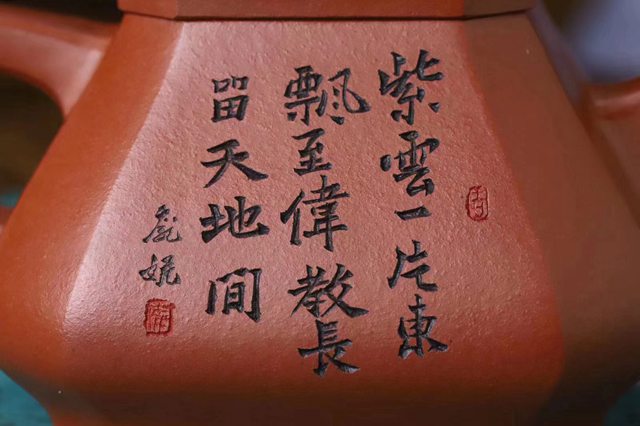 紫雲一片東
飄至偉教長
畱天地間